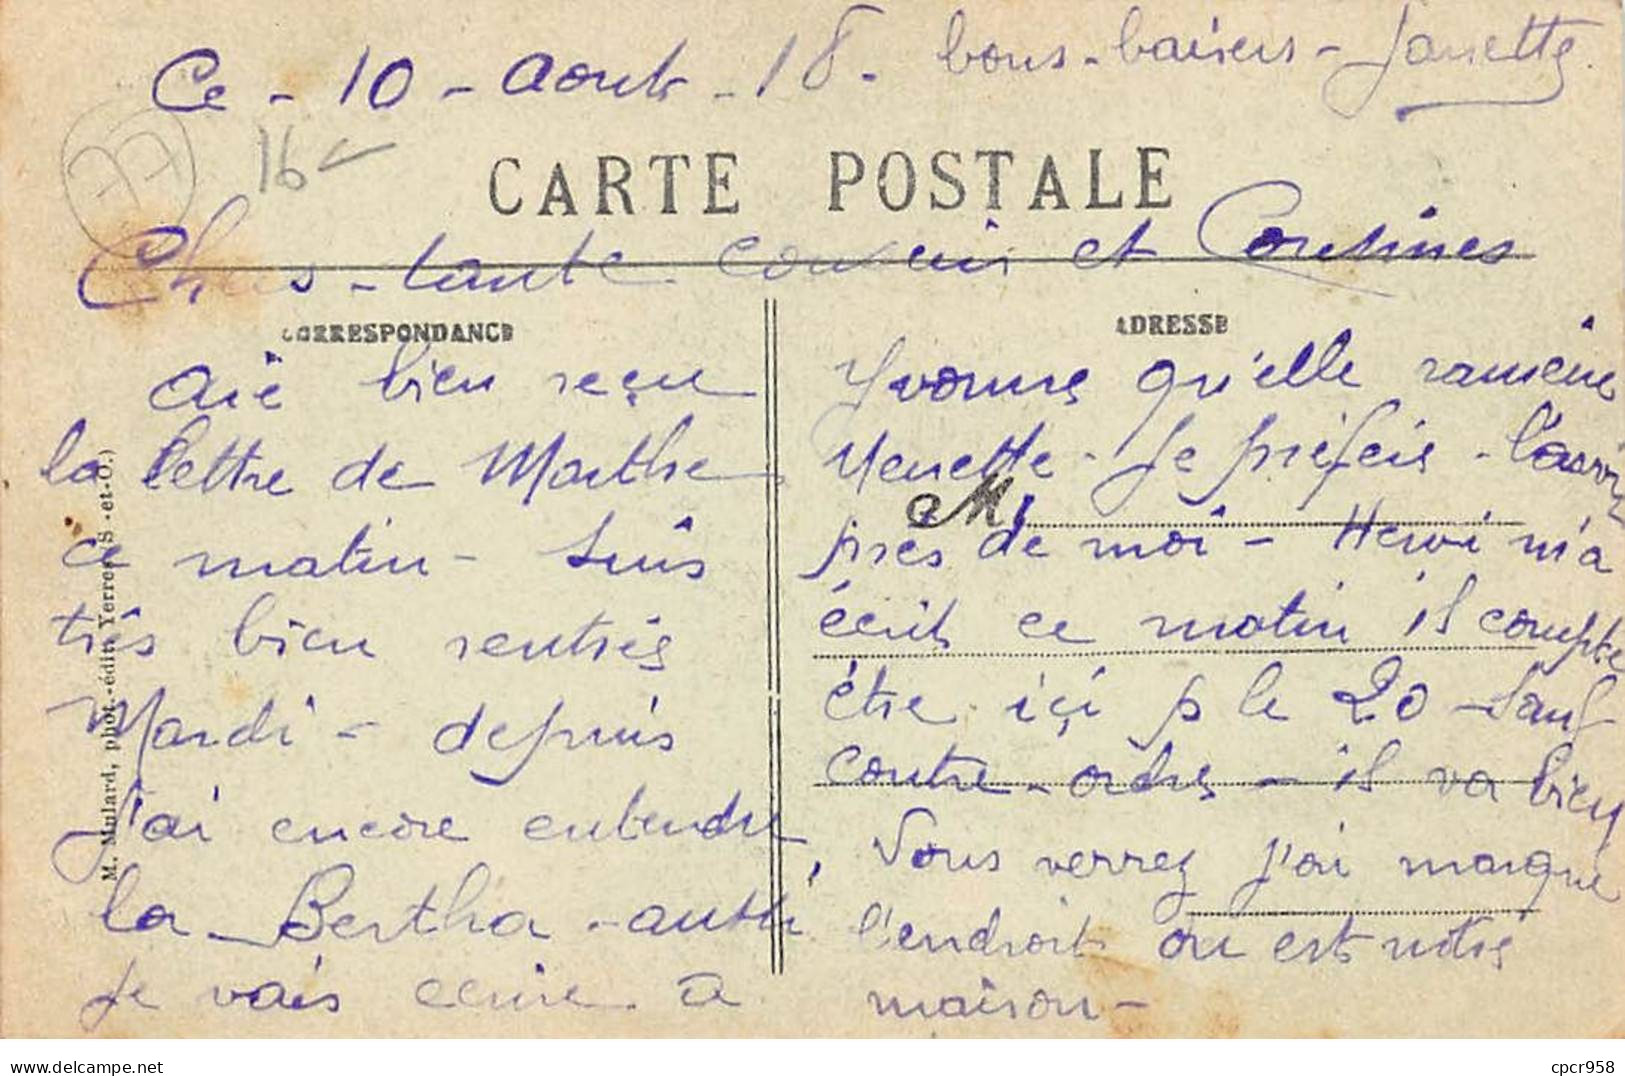 Ce - 10 - Aout - 18 - bons - baisers - Janette
77
16
CARTE POSTALE
Chers - tante - cousin et Cousines
CORRESPONDANCE
ADRESSE
aie bien reçu
la lettre de Marthe
ce matin - suis
très bien rentrés
Mardi - depuis
j'ai encore entendu
la - Bertha - aussi
je vais écrire à
Yvonne qu'elle ramène
Nenette - je préfère - l'avoir
M
près de moi - Henri m'a
écrit ce matin il compte
être içi p le 20 - sauf
contre - ordre - il va bien
Vous verrez j'ai marqué
l'endroit ou est notre
maison -
M. Mulard, phot.-édit. Yerres (S.-et-O.)
delcampe.net
cpcr958